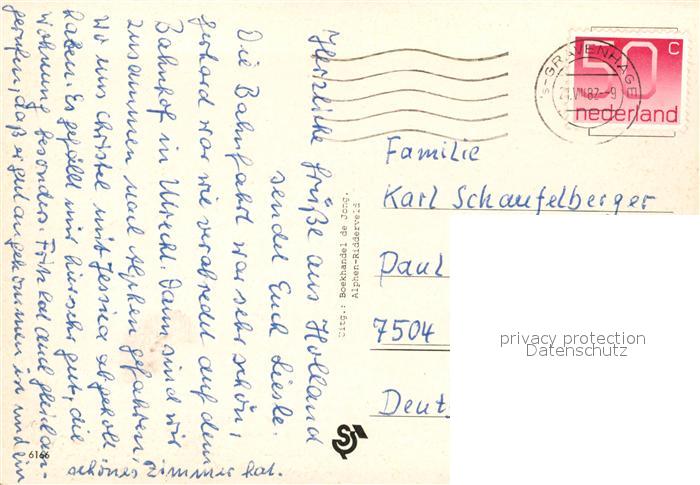 Herzliche Grüße aus Holland
sendet Euch Liesle.
Die Bahnfahrt war sehr schön,
Gerhard war wie verabredet auf dem
Bahnhof in Utrecht. Dann sind wir
zusammen nach Alphen gefahren,
wo uns Christel mit Jessica abgeholt
haben. Es gefällt mir hier sehr gut, die
Wohnung besonders. Fritz hat auch gleich an-
gerufen, daß er gut angekommen ist und ein
schönes Zimmer hat.
6166
Uitg.: Boekhandel de Jong.
Alphen-Ridderveld
'S-GRAVENHAGE
21.VII.82-9
50 C
nederland
Familie
Karl Schaufelberger
Paul
7504
Deut
privacy protection
Datenschutz